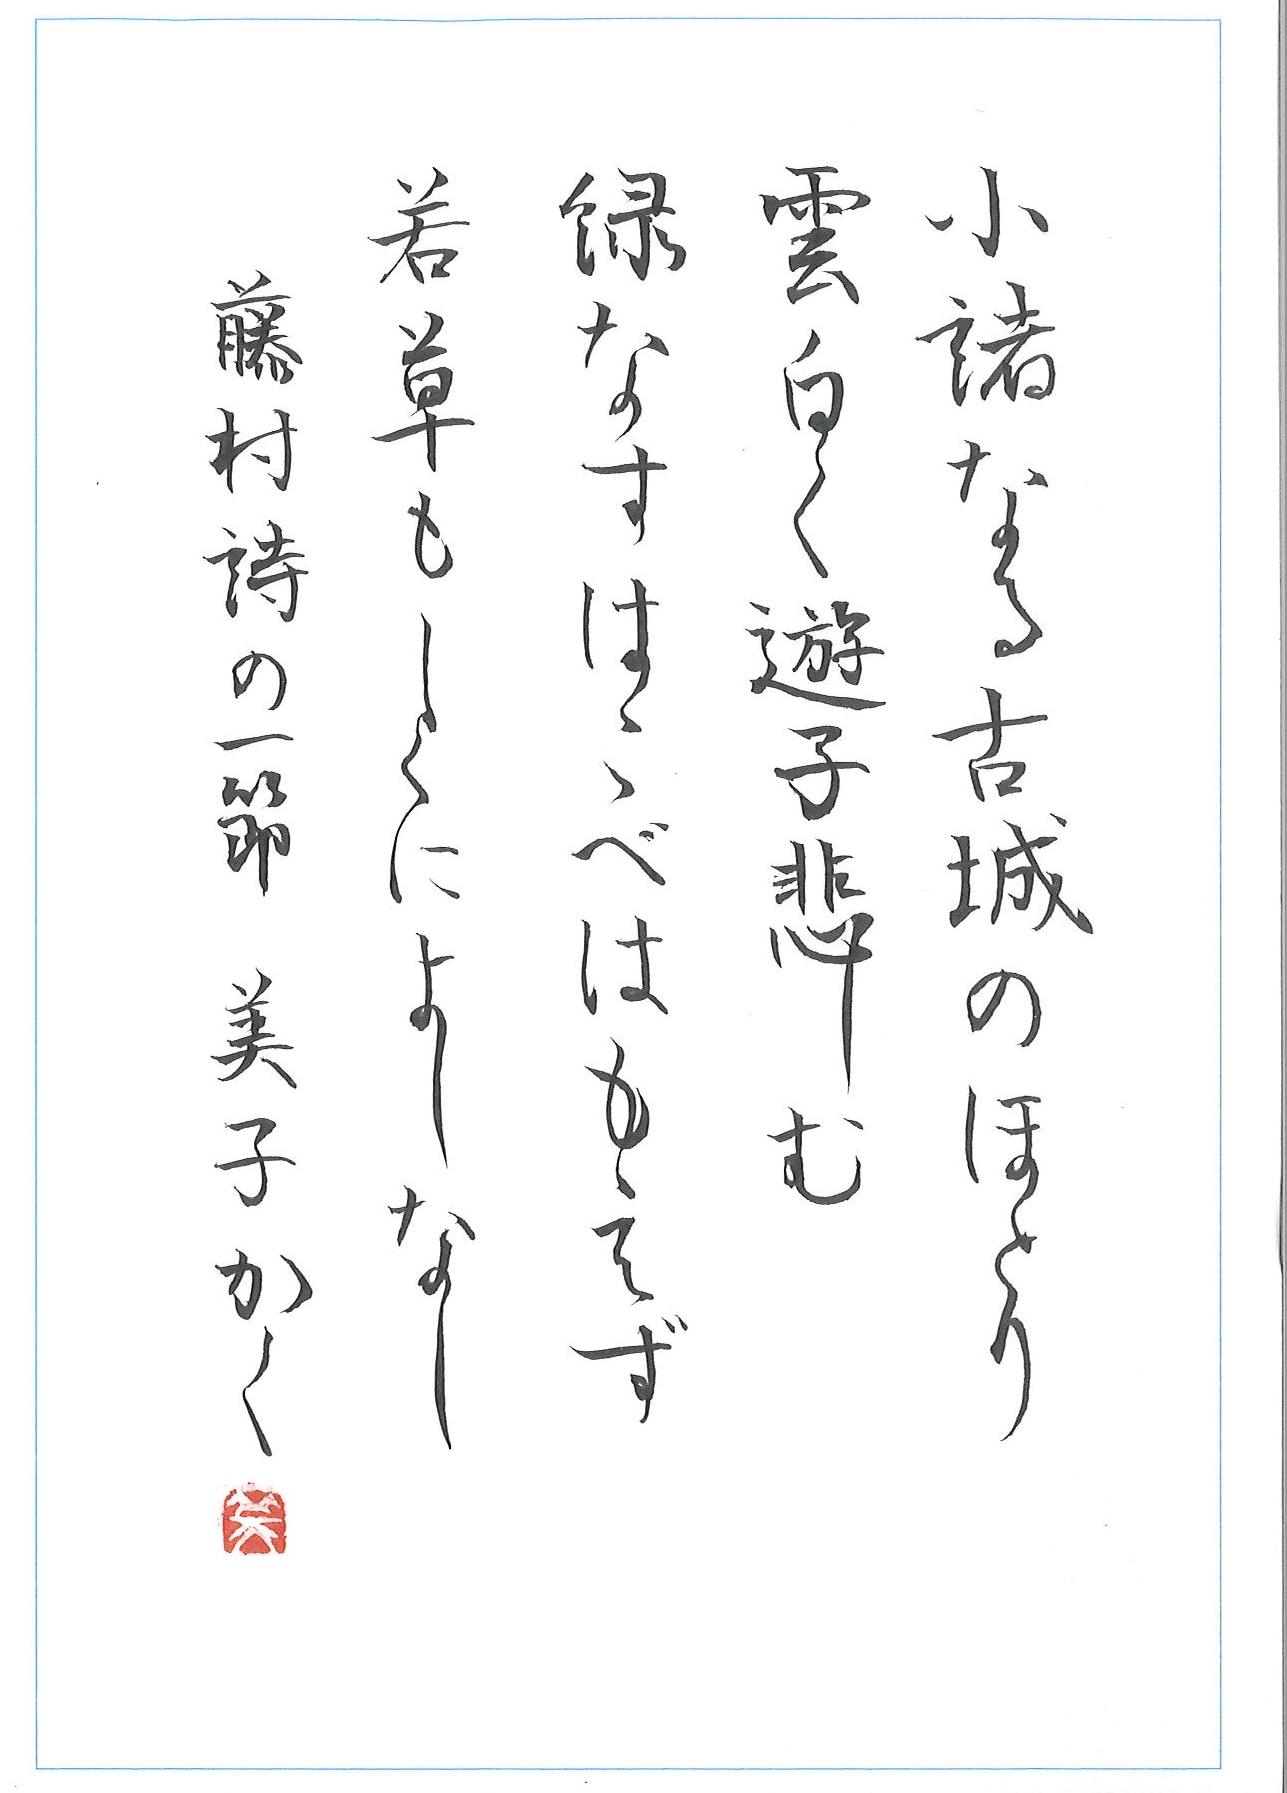 小諸なる古城のほとり
雲白く遊子悲しむ
緑なすはこべはもえず
若草もしくによしなし
藤村詩の一節 美子かく
美